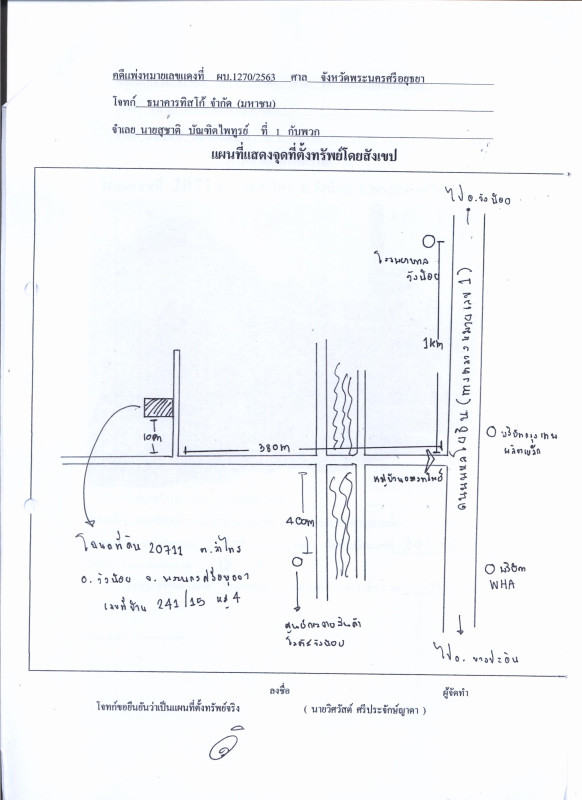 คดีแพ่งหมายเลขแดงที่ ผบ.1270/2563 ศาล จังหวัดพระนครศรีอยุธยา
โจทก์ ธนาคารทิสโก้ จำกัด (มหาชน)
จำเลย นายสุชาติ บัณฑิตไพฑูรย์ ที่ 1 กับพวก
แผนที่แสดงจุดที่ตั้งทรัพย์โดยสังเขป
ไป อ.วังน้อย
โรงพยาบาล
วังน้อย
1 km
ถนนพหลโยธิน (ทางหลวงหมายเลข 1)
10 m
380 m
หมู่บ้าน
บริษัทกรุงเทพ
ผลิตเหล็ก
400 m
โฉนดที่ดิน 20711 ต.ลำไทร
อ.วังน้อย จ.พระนครศรีอยุธยา
เลขที่บ้าน 241/15 หมู่ 4
บริษัท
WHA
ศูนย์กระจายสินค้า
โลตัสวังน้อย
ไป อ.บางปะอิน
ลงชื่อ ผู้จัดทำ
โจทก์ขอยืนยันว่าเป็นแผนที่ตั้งทรัพย์จริง ( นายวิศวัสต์ ศรีประจักษ์ญาดา )